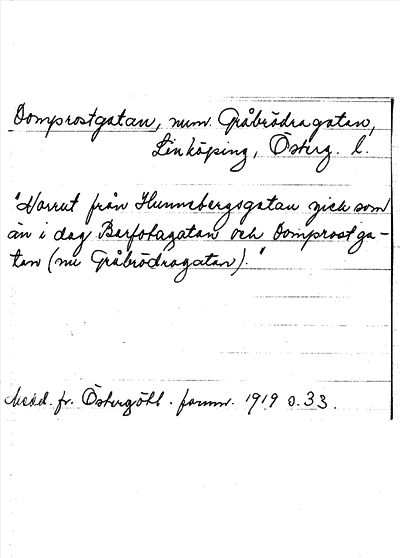 Domprostgatan, numv. Gråbrödragatan,
Linköping, Österg. l.
"Norrut från Hunnebergsgatan gick som
än i dag Barfotagatan och Domprostga-
tan (nu Gråbrödragatan)."
Medd. fr. Östergötl. fornm. 1919 s. 33.